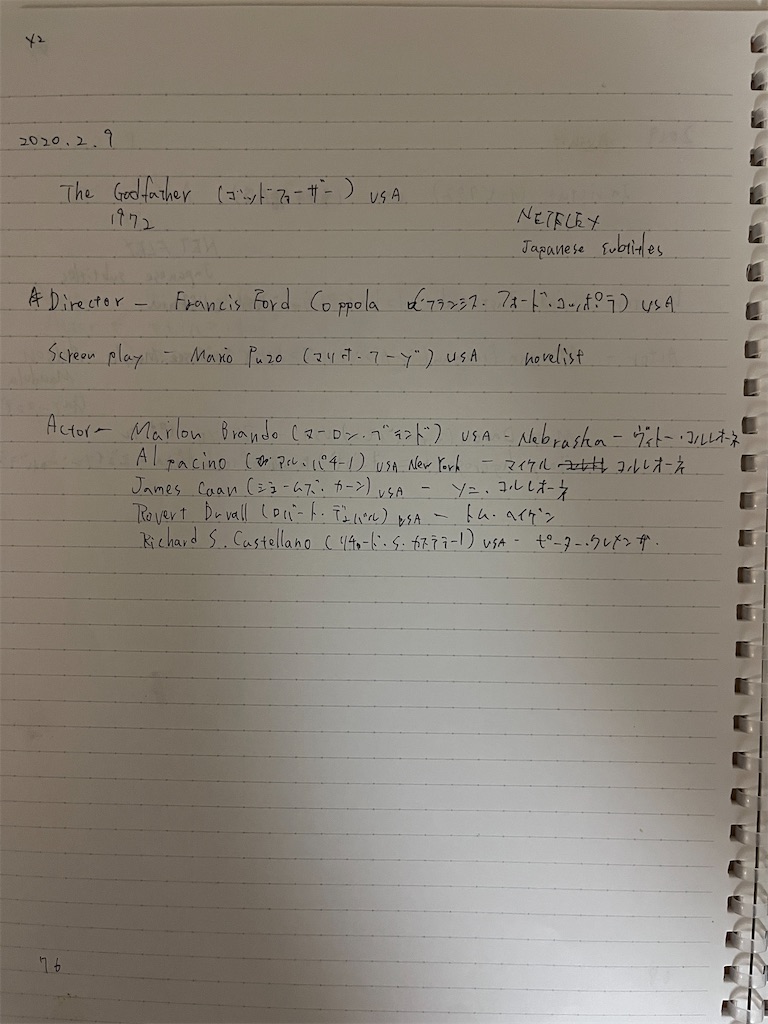 2020.2.9
The Godfather (ゴッドファーザー) USA
1972
NETFLEX
Japanese subtitles
Director - Francis Ford Coppola (フランシス・フォード・コッポラ) USA
Screen play - Mario Puzo (マリオ・プーゾ) USA novelist
Actor - Marlon Brando (マーロン・ブランド) USA - Nebraska - ヴィトー・コルレオーネ
Al pacino (アル・パチーノ) USA New York - マイケル コルレオーネ
James Caan (ジェームズ・カーン) USA - ソニ・コルレオーネ
Rovert Duvall (ロバート・デュバル) USA - トム・ヘイゲン
Richard S. Castellano (リチャード・S・カステラーノ) USA - ピーター・クレメンザ.
76